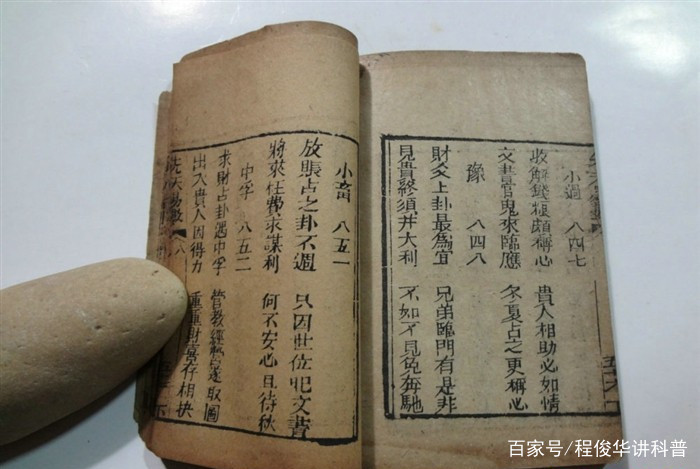 小過 八四七
收解錢糧頗稱心 貴人相助必如情
文書官鬼來臨應 冬夏占之更稱心
豫 八四八
財爻上卦最爲宜 兄弟臨門有是非
見貴終須并大利 不如不見免奔馳
小畜 八五一
放賬占之卦不週 只因世位犯文書
將來枉費求謀利 何不安心且待秋
中孚 八五二
求財占卦遇中孚 管教經營遂取圖
出入貴人因得力 重重財存相扶
先天易數 八
百家号/程俊华讲科普